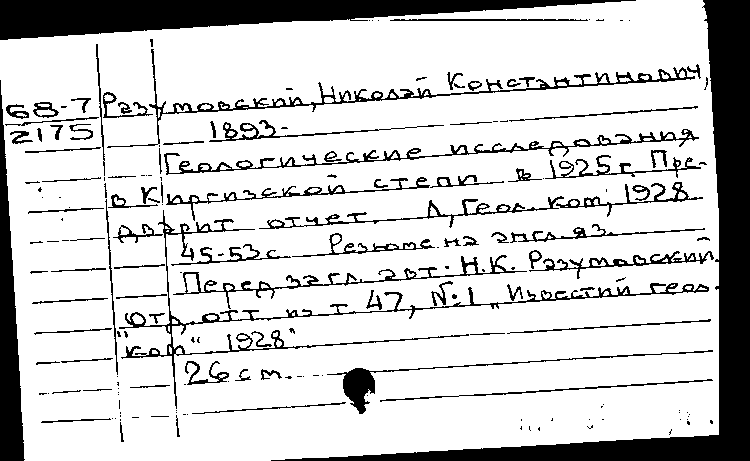 68-7 Разумовский, Николай Константинович,
2175 1893-
Геологические исследования
в Киргизской степи в 1925 г. Пре-
дварит отчет. Л, Геол. Ком, 1928
45-53 с. Резюме на англ. яз.
Перед загл. авт: Н.К. Разумовский.
Отд. отт. из т. 47, №1 „Известий геол.
"ком" 1928"
26 см.